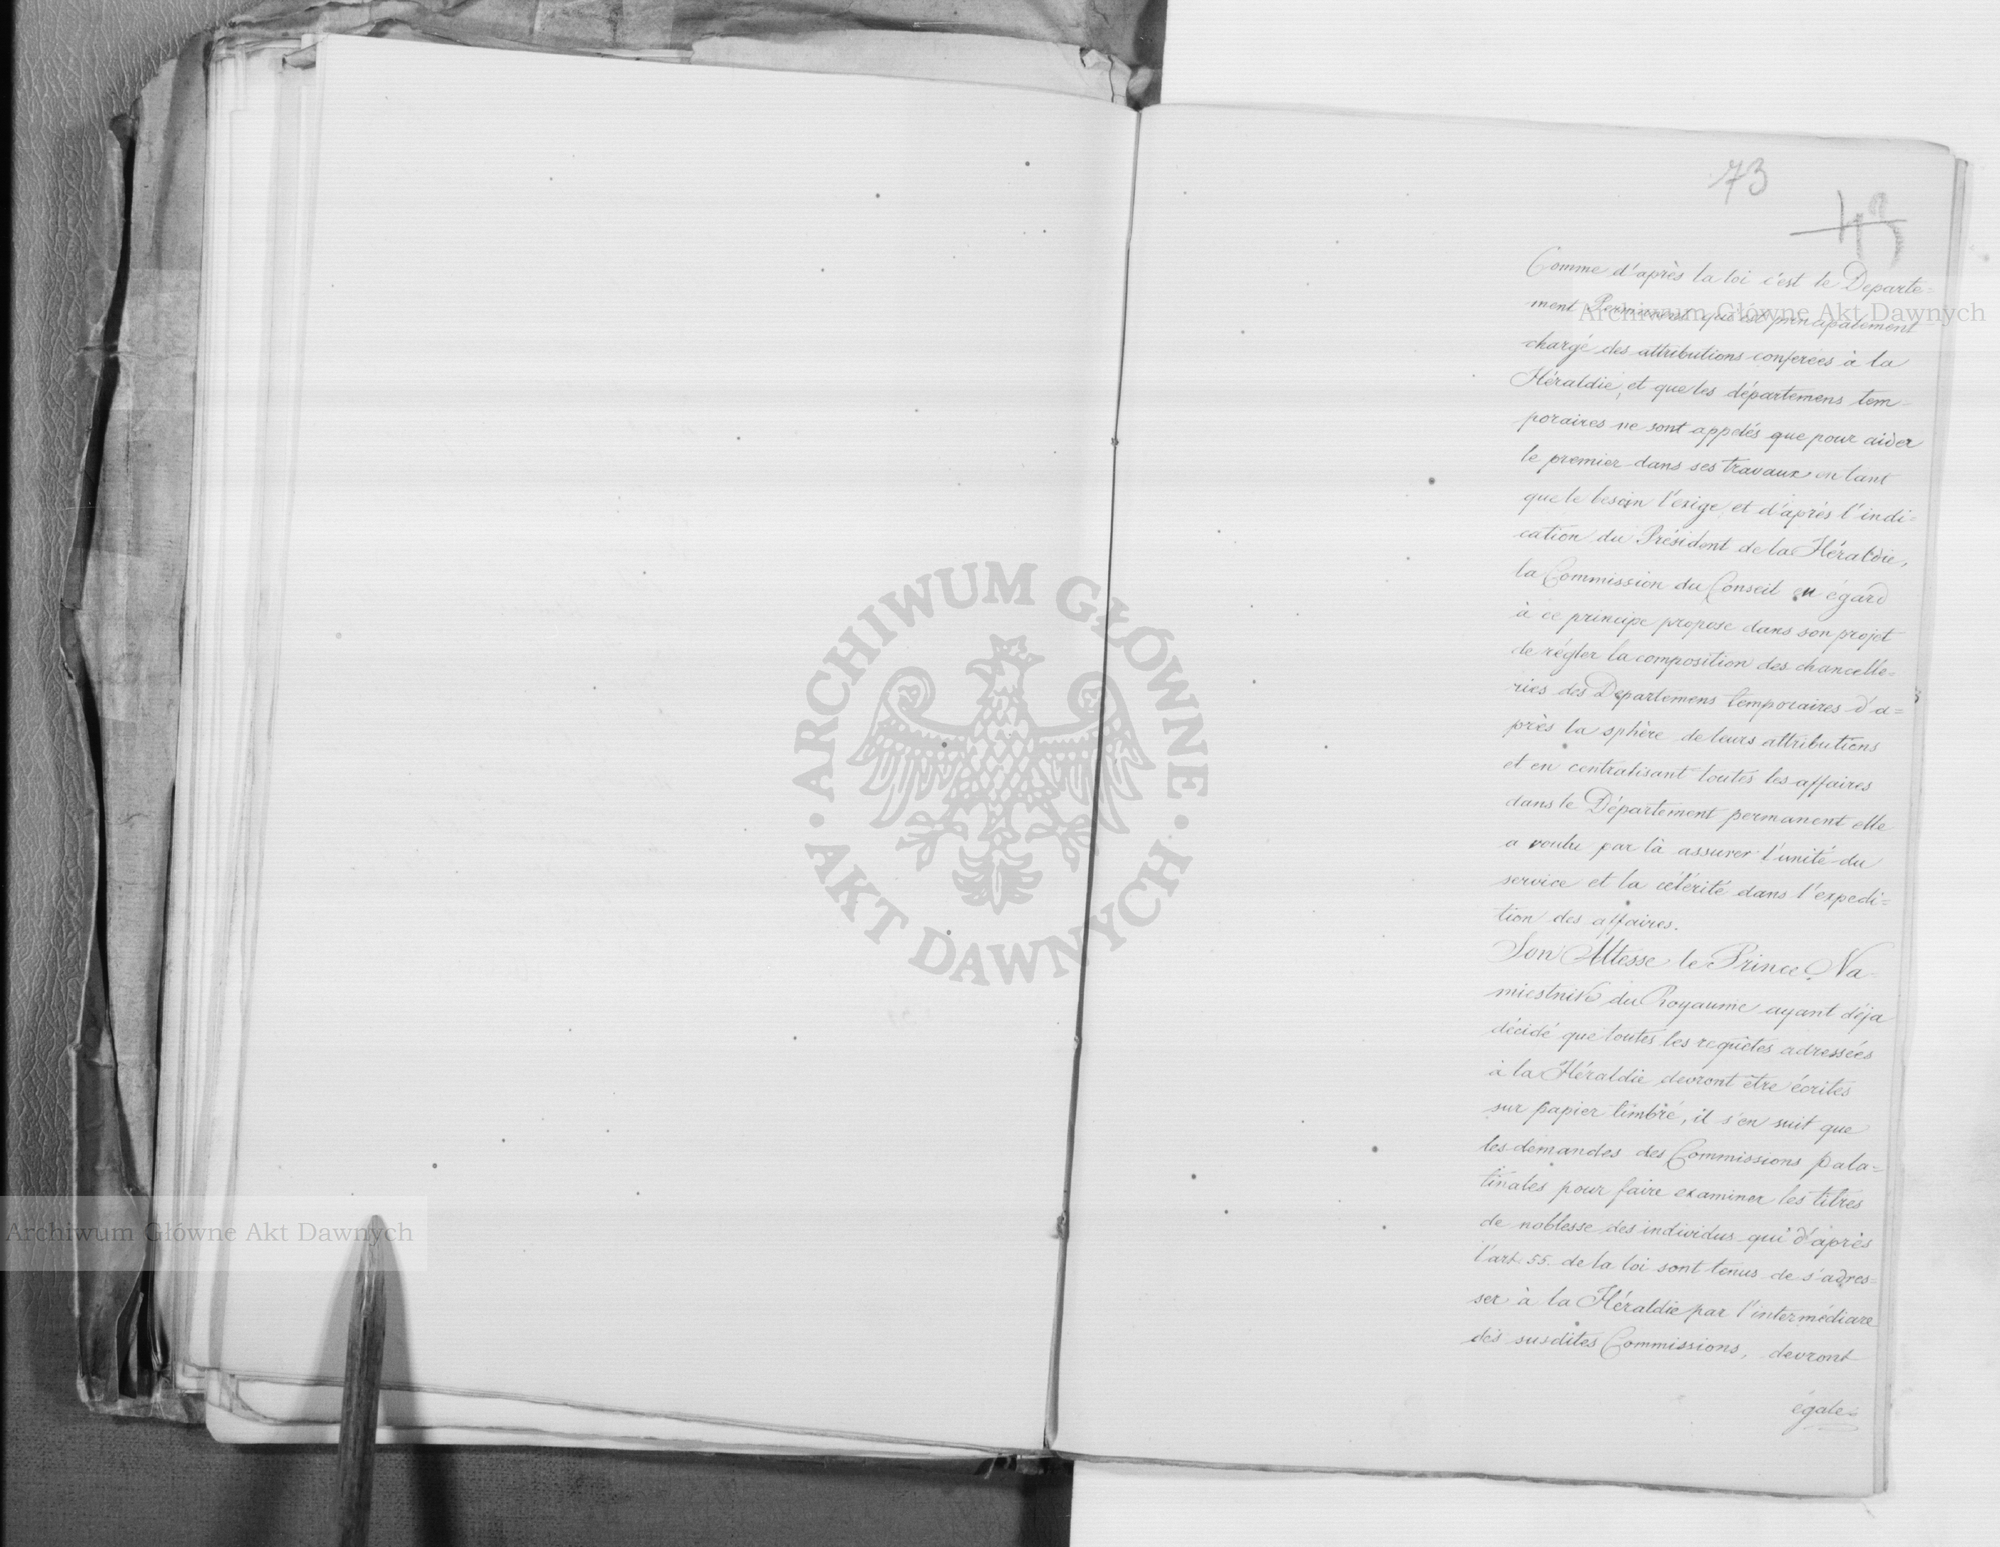 73
Comme d'après la loi c'est le Departe=
ment Permanent qui est principalement
chargé des attributions conferées à la
Héraldie, et que les départemens tem=
poraires ne sont appelés que pour aider
le premier dans ses travaux en tant
que le besoin l'exige, et d'après l'indi=
cation du Président de la Héraldie,
la Commission du Conseil eu égard
à ce principe propose dans son projet
de régler la composition des chancelle=
ries des Departemens temporaires d'a=
près la sphère de leurs attributions
et en centralisant toutes les affaires
dans le Département permanent elle
a voulu par là assurer l'unité du
service et la célérité dans l'expedi=
tion des affaires.
Son Altesse le Prince Na=
miestnik du Royaume ayant déja
décidé que toutes les requêtes adressées
à la Héraldie devront être écrites
sur papier timbré, il s'en suit que
les demandes des Commissions pala=
tinales pour faire examiner les titres
de noblesse des individus qui d'après
l'art. 55. de la loi sont tenus de s'adres=
ser à la Héraldie par l'intermédiare
des susdites Commissions, devront
égale=
Archiwum Główne Akt Dawnych
Archiwum Główne Akt Dawnych
ARCHIWUM GŁÓWNE
AKT DAWNYCH